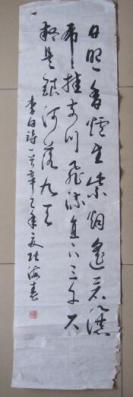 日照香炉生紫烟遥看瀑
布挂前川飞流直下三千尺
疑是银河落九天
李白诗一首辛巳年夏